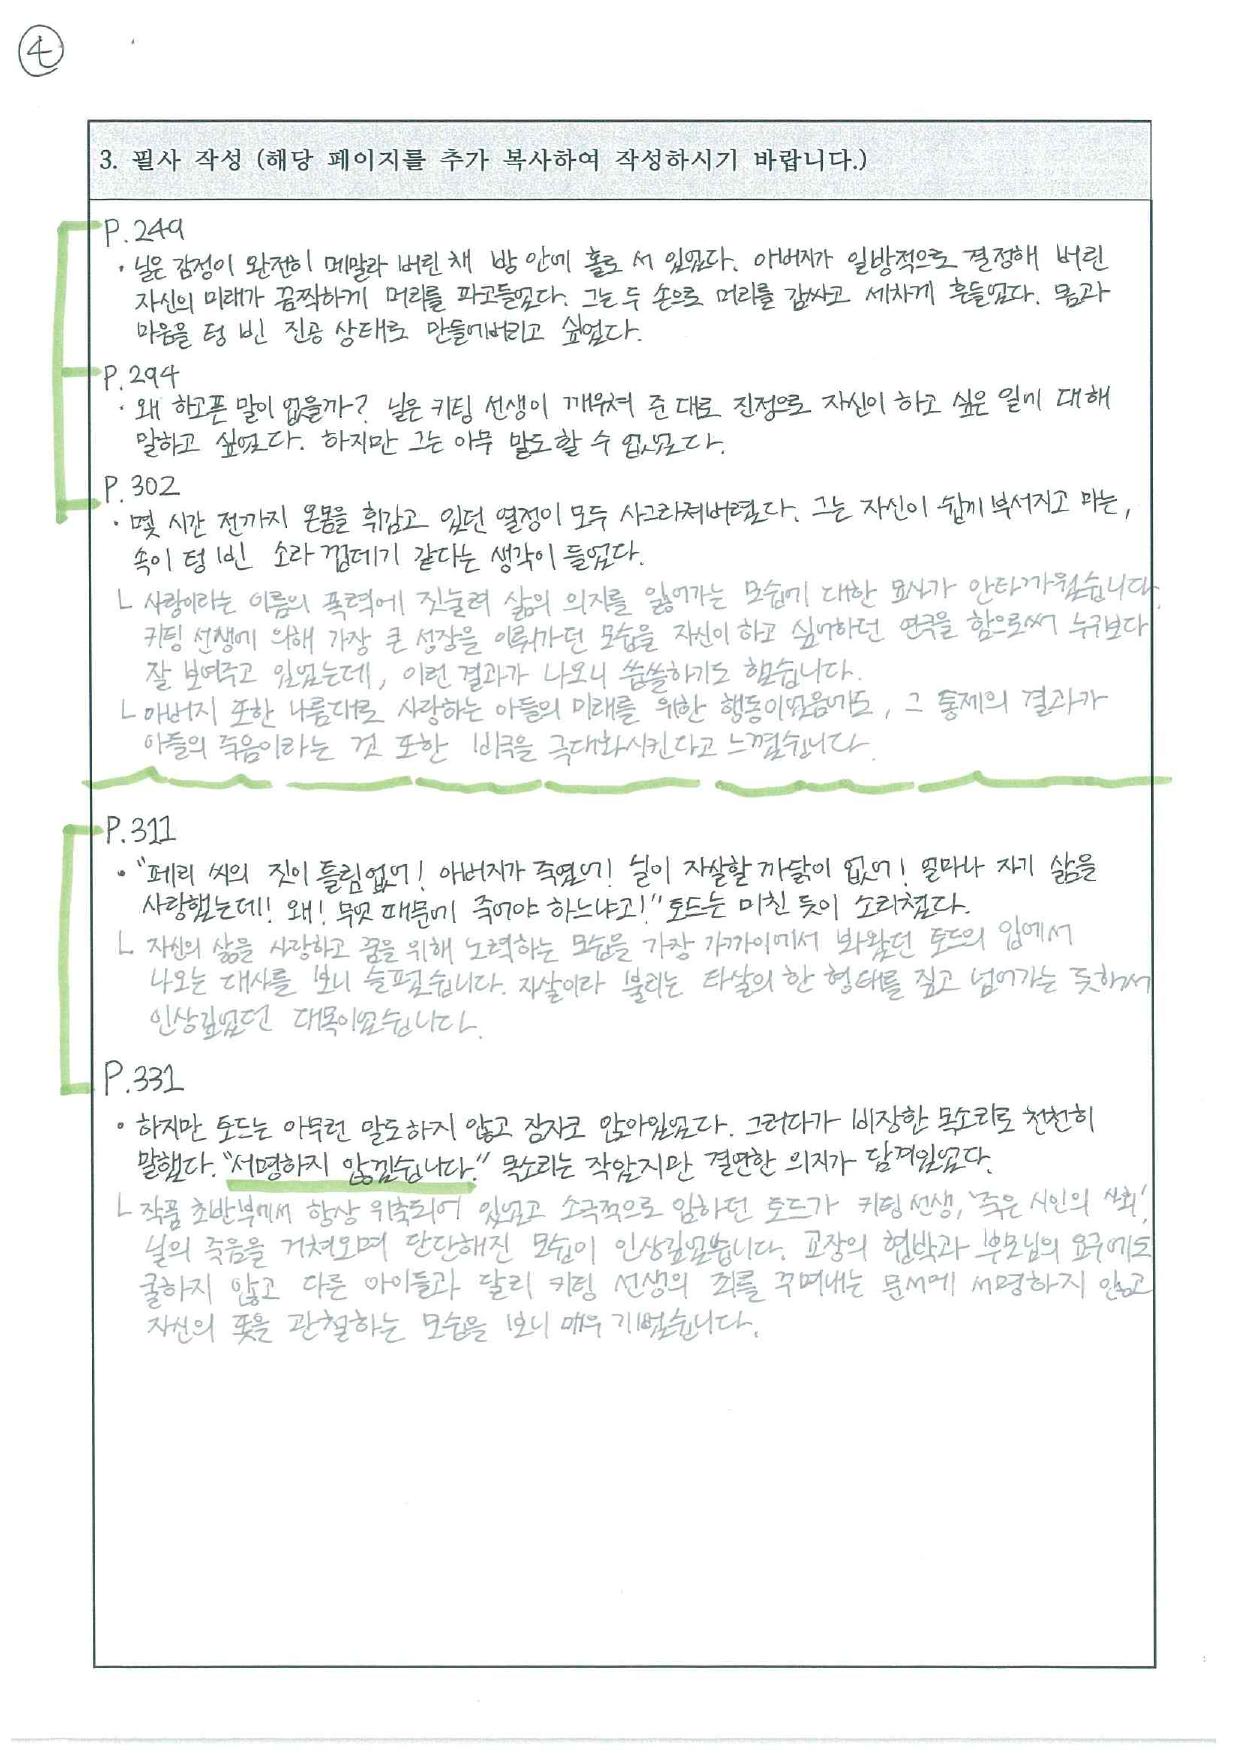 4
3. 필사 작성 (해당 페이지를 추가 복사하여 작성하시기 바랍니다.)
P.249
· 닐은 감정이 완전히 메말라 버린 채 방 안에 홀로 서 있었다. 아버지가 일방적으로 결정해 버린
자신의 미래가 끔찍하게 머리를 파고들었다. 그는 두 손으로 머리를 감싸고 세차게 흔들었다. 몸과
마음을 텅 빈 진공 상태로 만들어버리고 싶었다.
P.294
· 왜 하고픈 말이 없을까? 닐은 키팅 선생이 깨우쳐 준 대로 진정으로 자신이 하고 싶은 일에 대해
말하고 싶었다. 하지만 그는 아무 말도 할 수 없었다.
P.302
· 몇 시간 전까지 온몸을 휘감고 있던 열정이 모두 사그라져버렸다. 그는 자신이 쉽게 부서지고 마는,
속이 텅 빈 소라 껍데기 같다는 생각이 들었다.
ㄴ 사랑이라는 이름의 폭력에 짓눌려 삶의 의지를 잃어가는 모습에 대한 묘사가 안타까웠습니다.
키팅 선생에 의해 가장 큰 성장을 이뤄가던 모습을 자신이 하고 싶어하던 연극을 함으로써 누구보다
잘 보여주고 있었는데, 이런 결과가 나오니 씁쓸하기도 했습니다.
ㄴ 아버지 또한 나름대로 사랑하는 아들의 미래를 위한 행동이었음에도, 그 통제의 결과가
아들의 죽음이라는 것 또한 비극을 극대화시킨다고 느꼈습니다.
P.311
· "페리 씨의 짓이 틀림없어! 아버지가 죽였어! 닐이 자살할 까닭이 없어! 얼마나 자기 삶을
사랑했는데! 왜! 무엇 때문에 죽어야 하느냐고!" 토드는 미친 듯이 소리쳤다.
ㄴ 자신의 삶을 사랑하고 꿈을 위해 노력하는 모습을 가장 가까이에서 봐왔던 토드의 입에서
나오는 대사를 보니 슬펐습니다. 자살이라 불리는 타살의 한 형태를 짚고 넘어가는 듯해서
인상깊었던 대목이었습니다.
P.331
· 하지만 토드는 아무런 말도하지 않고 잠자코 앉아있었다. 그러다가 비장한 목소리로 천천히
말했다. "서명하지 않겠습니다." 목소리는 작았지만 결연한 의지가 담겨있었다.
ㄴ 작품 초반부에서 항상 위축되어 있었고 소극적으로 임하던 토드가 키팅 선생, '죽은 시인의 사회',
닐의 죽음을 거쳐오며 단단해진 모습이 인상깊었습니다. 교장의 협박과 부모님의 요구에도
굴하지 않고 다른 아이들과 달리 키팅 선생의 죄를 꾸며내는 문서에 서명하지 않고
자신의 뜻을 관철하는 모습을 보니 매우 기뻤습니다.